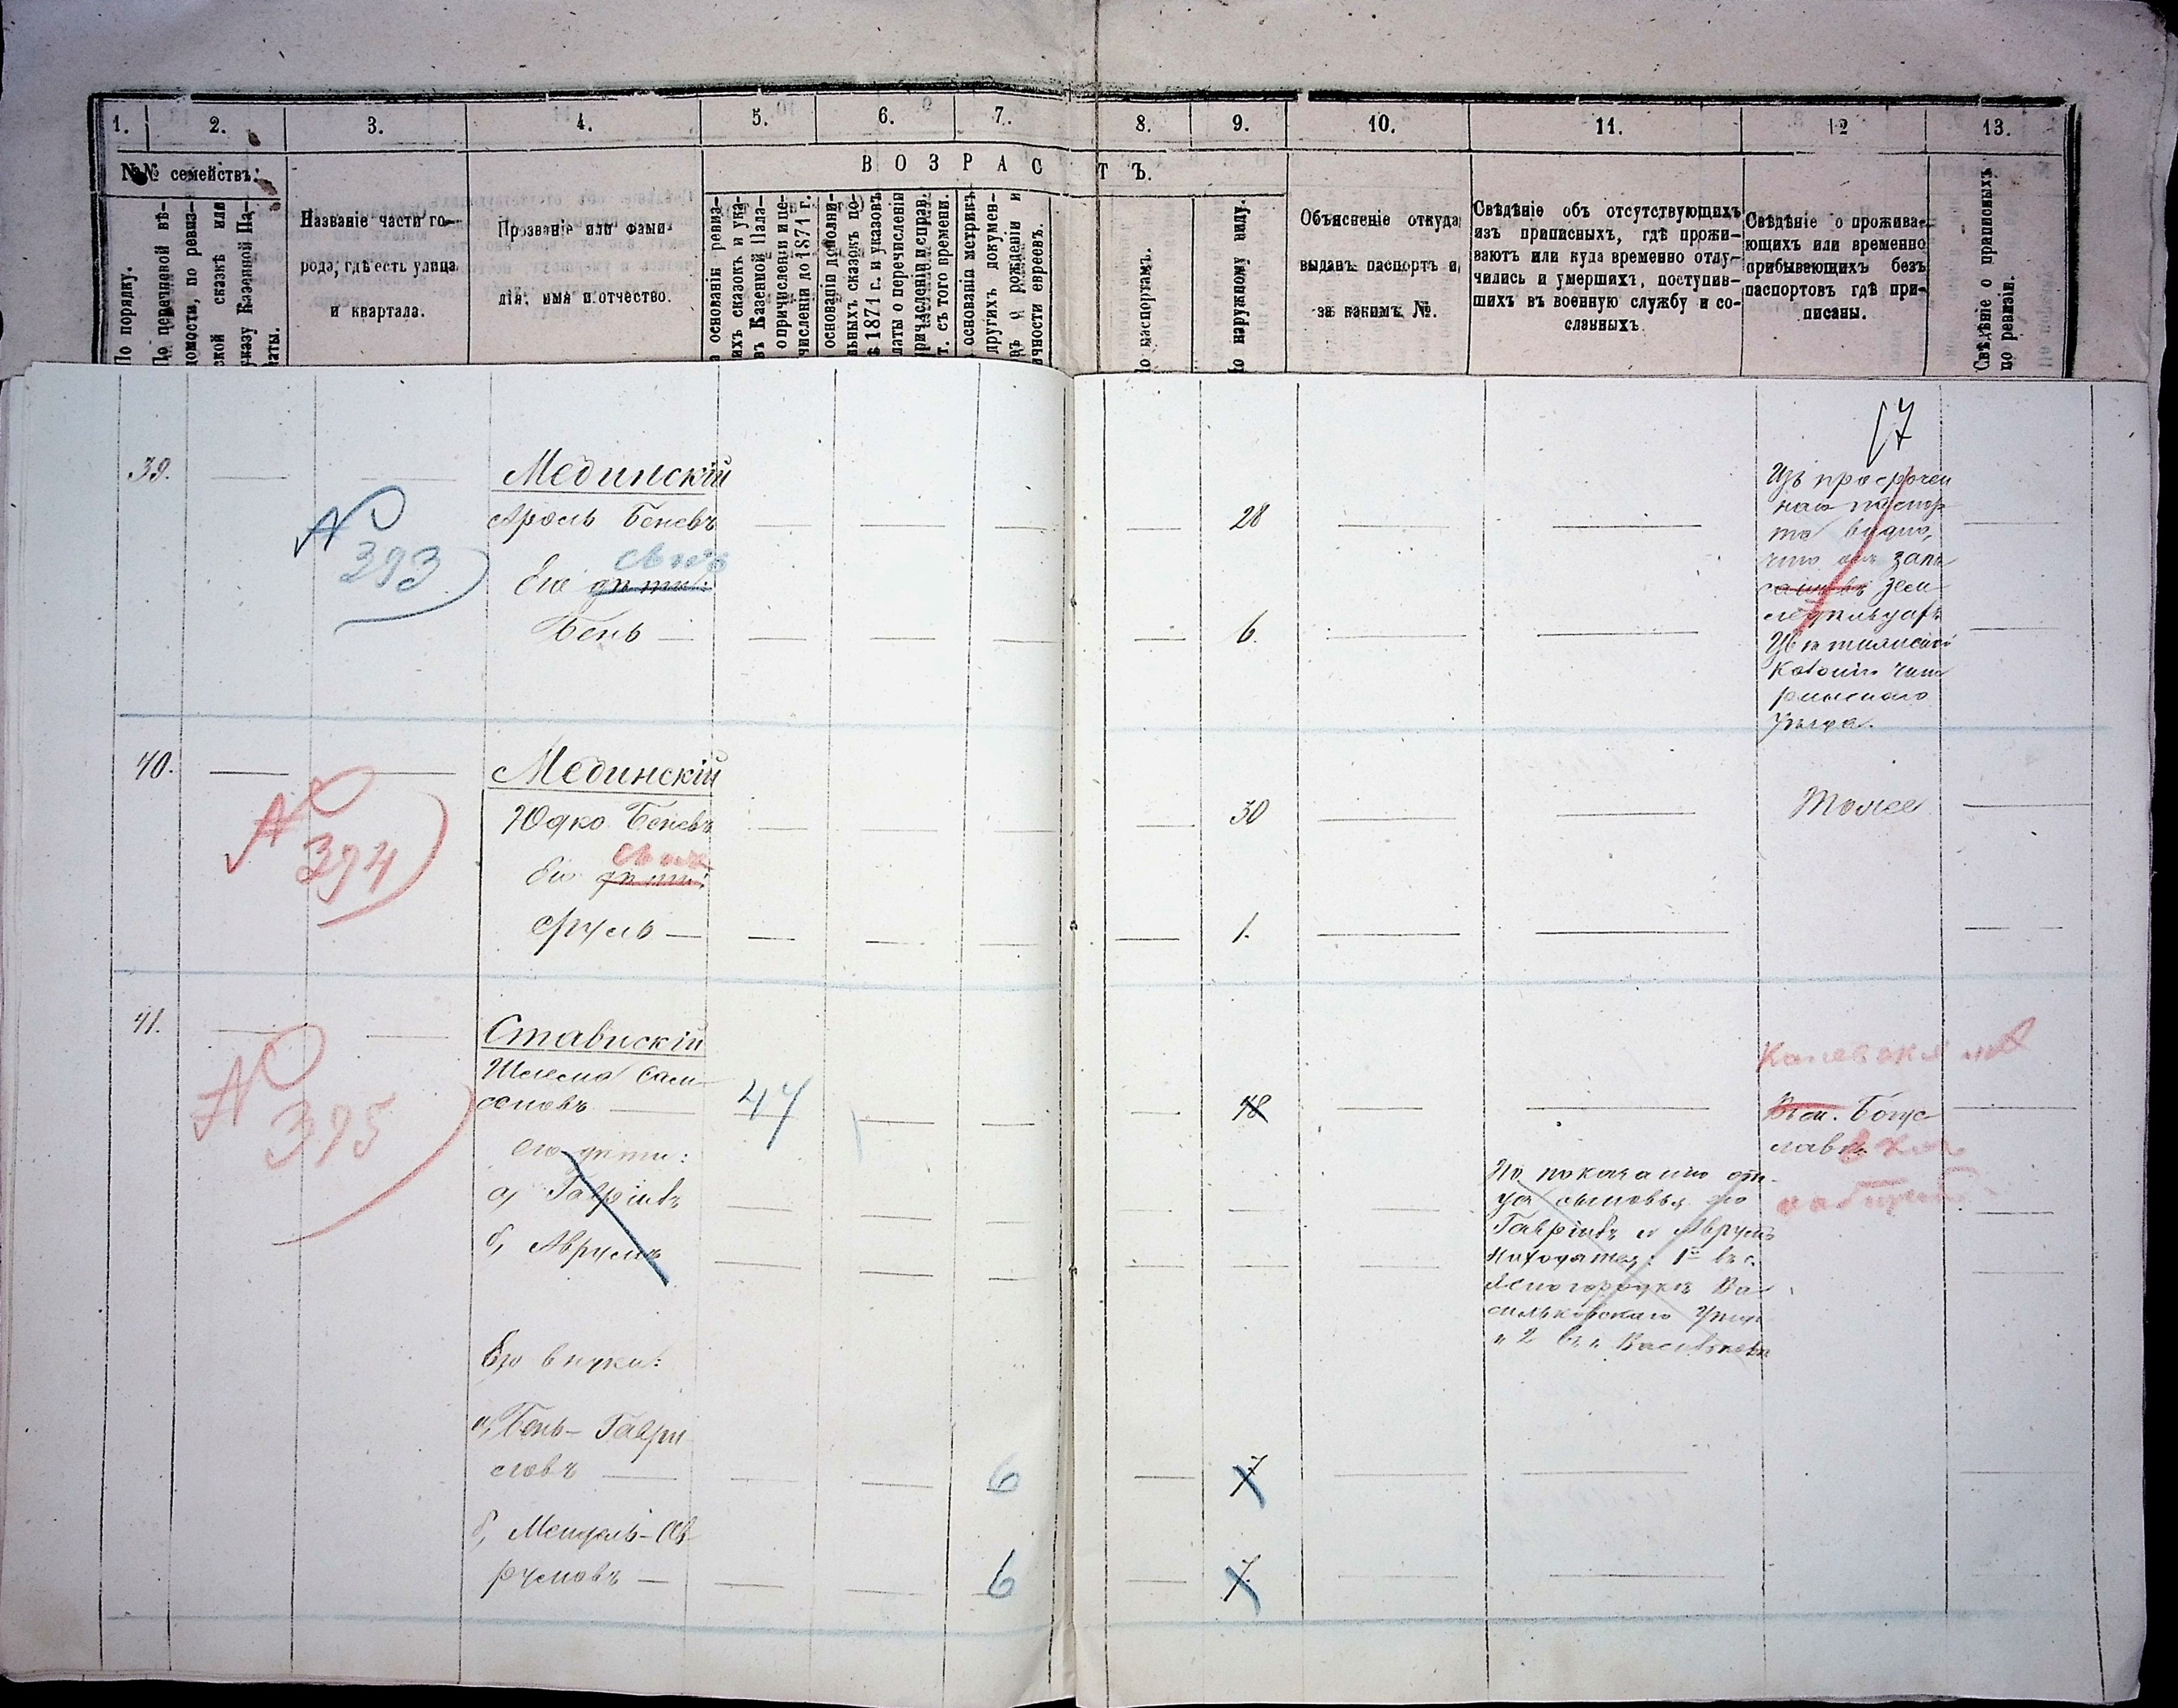 1.
2.
3.
4.
5.
6.
7.
8.
9.
10.
11.
12
13.
№№ семействъ.
ВОЗРАСТЪ.
По порядку.
По перечневой вѣ-
домости, по ревиз-
ской сказкѣ или
указу Казенной Па-
латы.
Названіе части го-
рода, гдѣ есть улица
и квартала.
Прозваніе или фами-
лія, имя и отчество.
основаніи ревиз-
ихъ сказокъ и ука-
въ Казенной Пала-
о причисленіи и пе-
численіи до 1871 г.
основаніи дополни-
льныхъ сказокъ по-
ѣ 1871 г. и указовъ
латы о перечисленіи
ричисленіи и справ.
т. съ того времени.
основаніи метрикъ
другихъ докумен-
въ о рожденіи и
ичности евреевъ.
о паспортамъ.
о наружному виду.
Объясненіе откуда
выданъ паспортъ и
за какимъ №.
Свѣдѣніе объ отсутствующихъ
изъ приписныхъ, гдѣ прожи-
ваютъ или куда временно отлу-
чились и умершихъ, поступив-
шихъ въ военную службу и со-
сланныхъ.
Свѣдѣніе о прожива-
ющихъ или временно
прибывающихъ безъ
паспортовъ гдѣ при-
писаны.
Свѣдѣніе о приписныхъ
по ревизіи.
17
39.
№ 393
Мединскій
Аронъ Беневъ
28
сынъ
Его дѣти:
Бень —
6.
Изъ просрочен
наго паспор
та видно,
что онъ запи
санъ въ зем
ледѣльцахъ
колоніи
уѣзда.
40.
№ 394
Мединскій
Юдко Беневъ
30
Тоже
сынъ
Его дѣти:
Сруль —
1.
41.
№ 395
Ставискій
Шлема Сам-
соновъ
47
48
Каневскя
Въ м. Богус
лавѣ
его дѣти:
а, Гавріилъ
б, Аврумъ
По показанію от-
ца сыновья его
Гавріилъ и Аврумъ
находятся: 1й въ с.
Ясногородкѣ Ва-
сильковскаго уѣзда
и 2 въ г. Васильковѣ
Его внуки:
а, Бень-Гаври
ловъ
6
7
б, Мендель-Ав-
румовъ —
6
7.